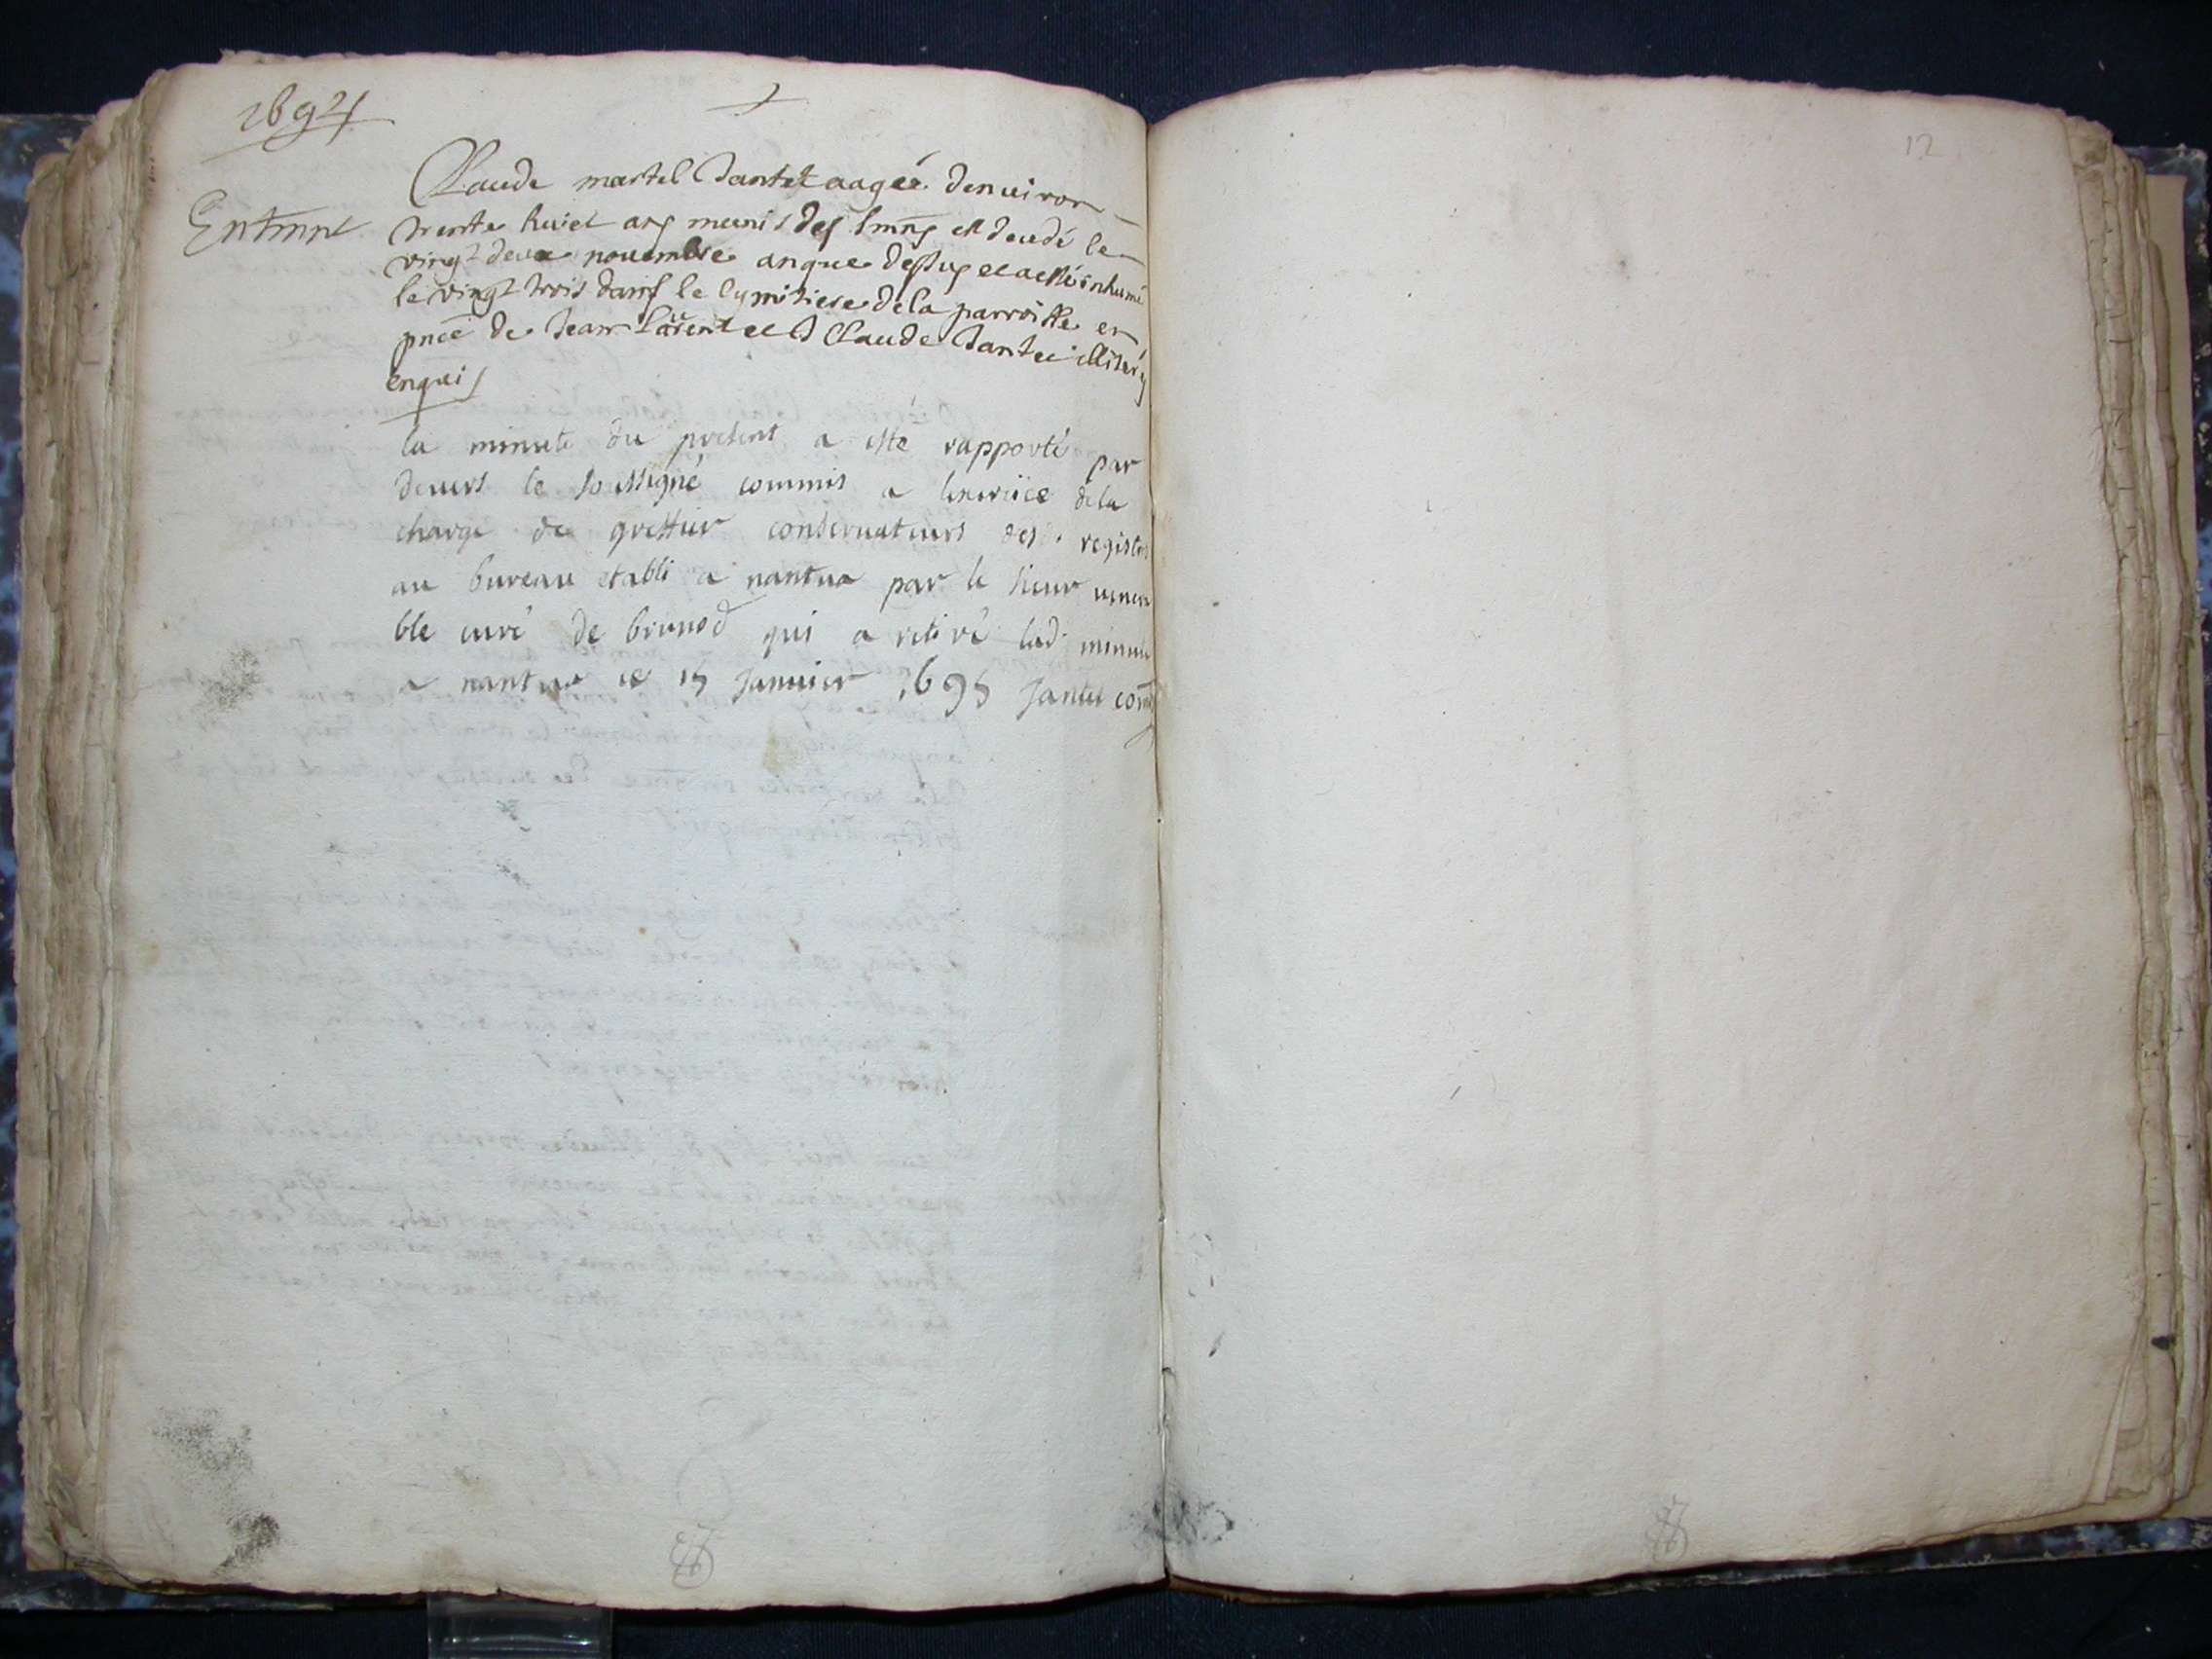 1694
12
Claude martel Jantet aagée denuiron
Entrmnt
trente huict ans munis des smns est decedé le
vingt deux nouembre anque dessus et a esté inhumé
le vingt trois dans le cymitiere de la parroisse en
pnce de Jean Laurent et Claude Jantet illiterés
enquis
la minute du present a este rapporté par
deuers le soussigné commis a lexercice de la
charge de greffier conseruateurs des registres
au bureau etabli a nantua par le sieur venera
ble curé de brenod qui a retiré lad minute
a nantua ce 15 Januier 1695 Jantet com